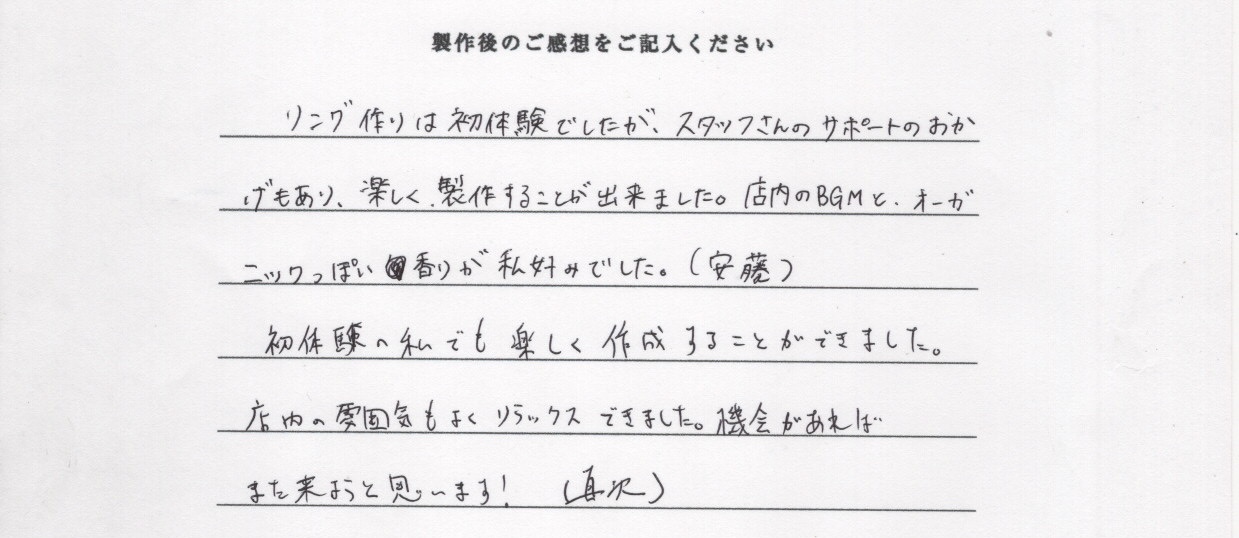 製作後のご感想をご記入ください
リング作りは初体験でしたが、スタッフさんのサポートのおか
げもあり、楽しく製作することが出来ました。店内のBGMと、オーガ
ニックっぽい香りが私好みでした。(安藤)
初体験の私でも楽しく作成することができました。
店内の雰囲気もよくリラックスできました。機会があれば
また来ようと思います! (直次)